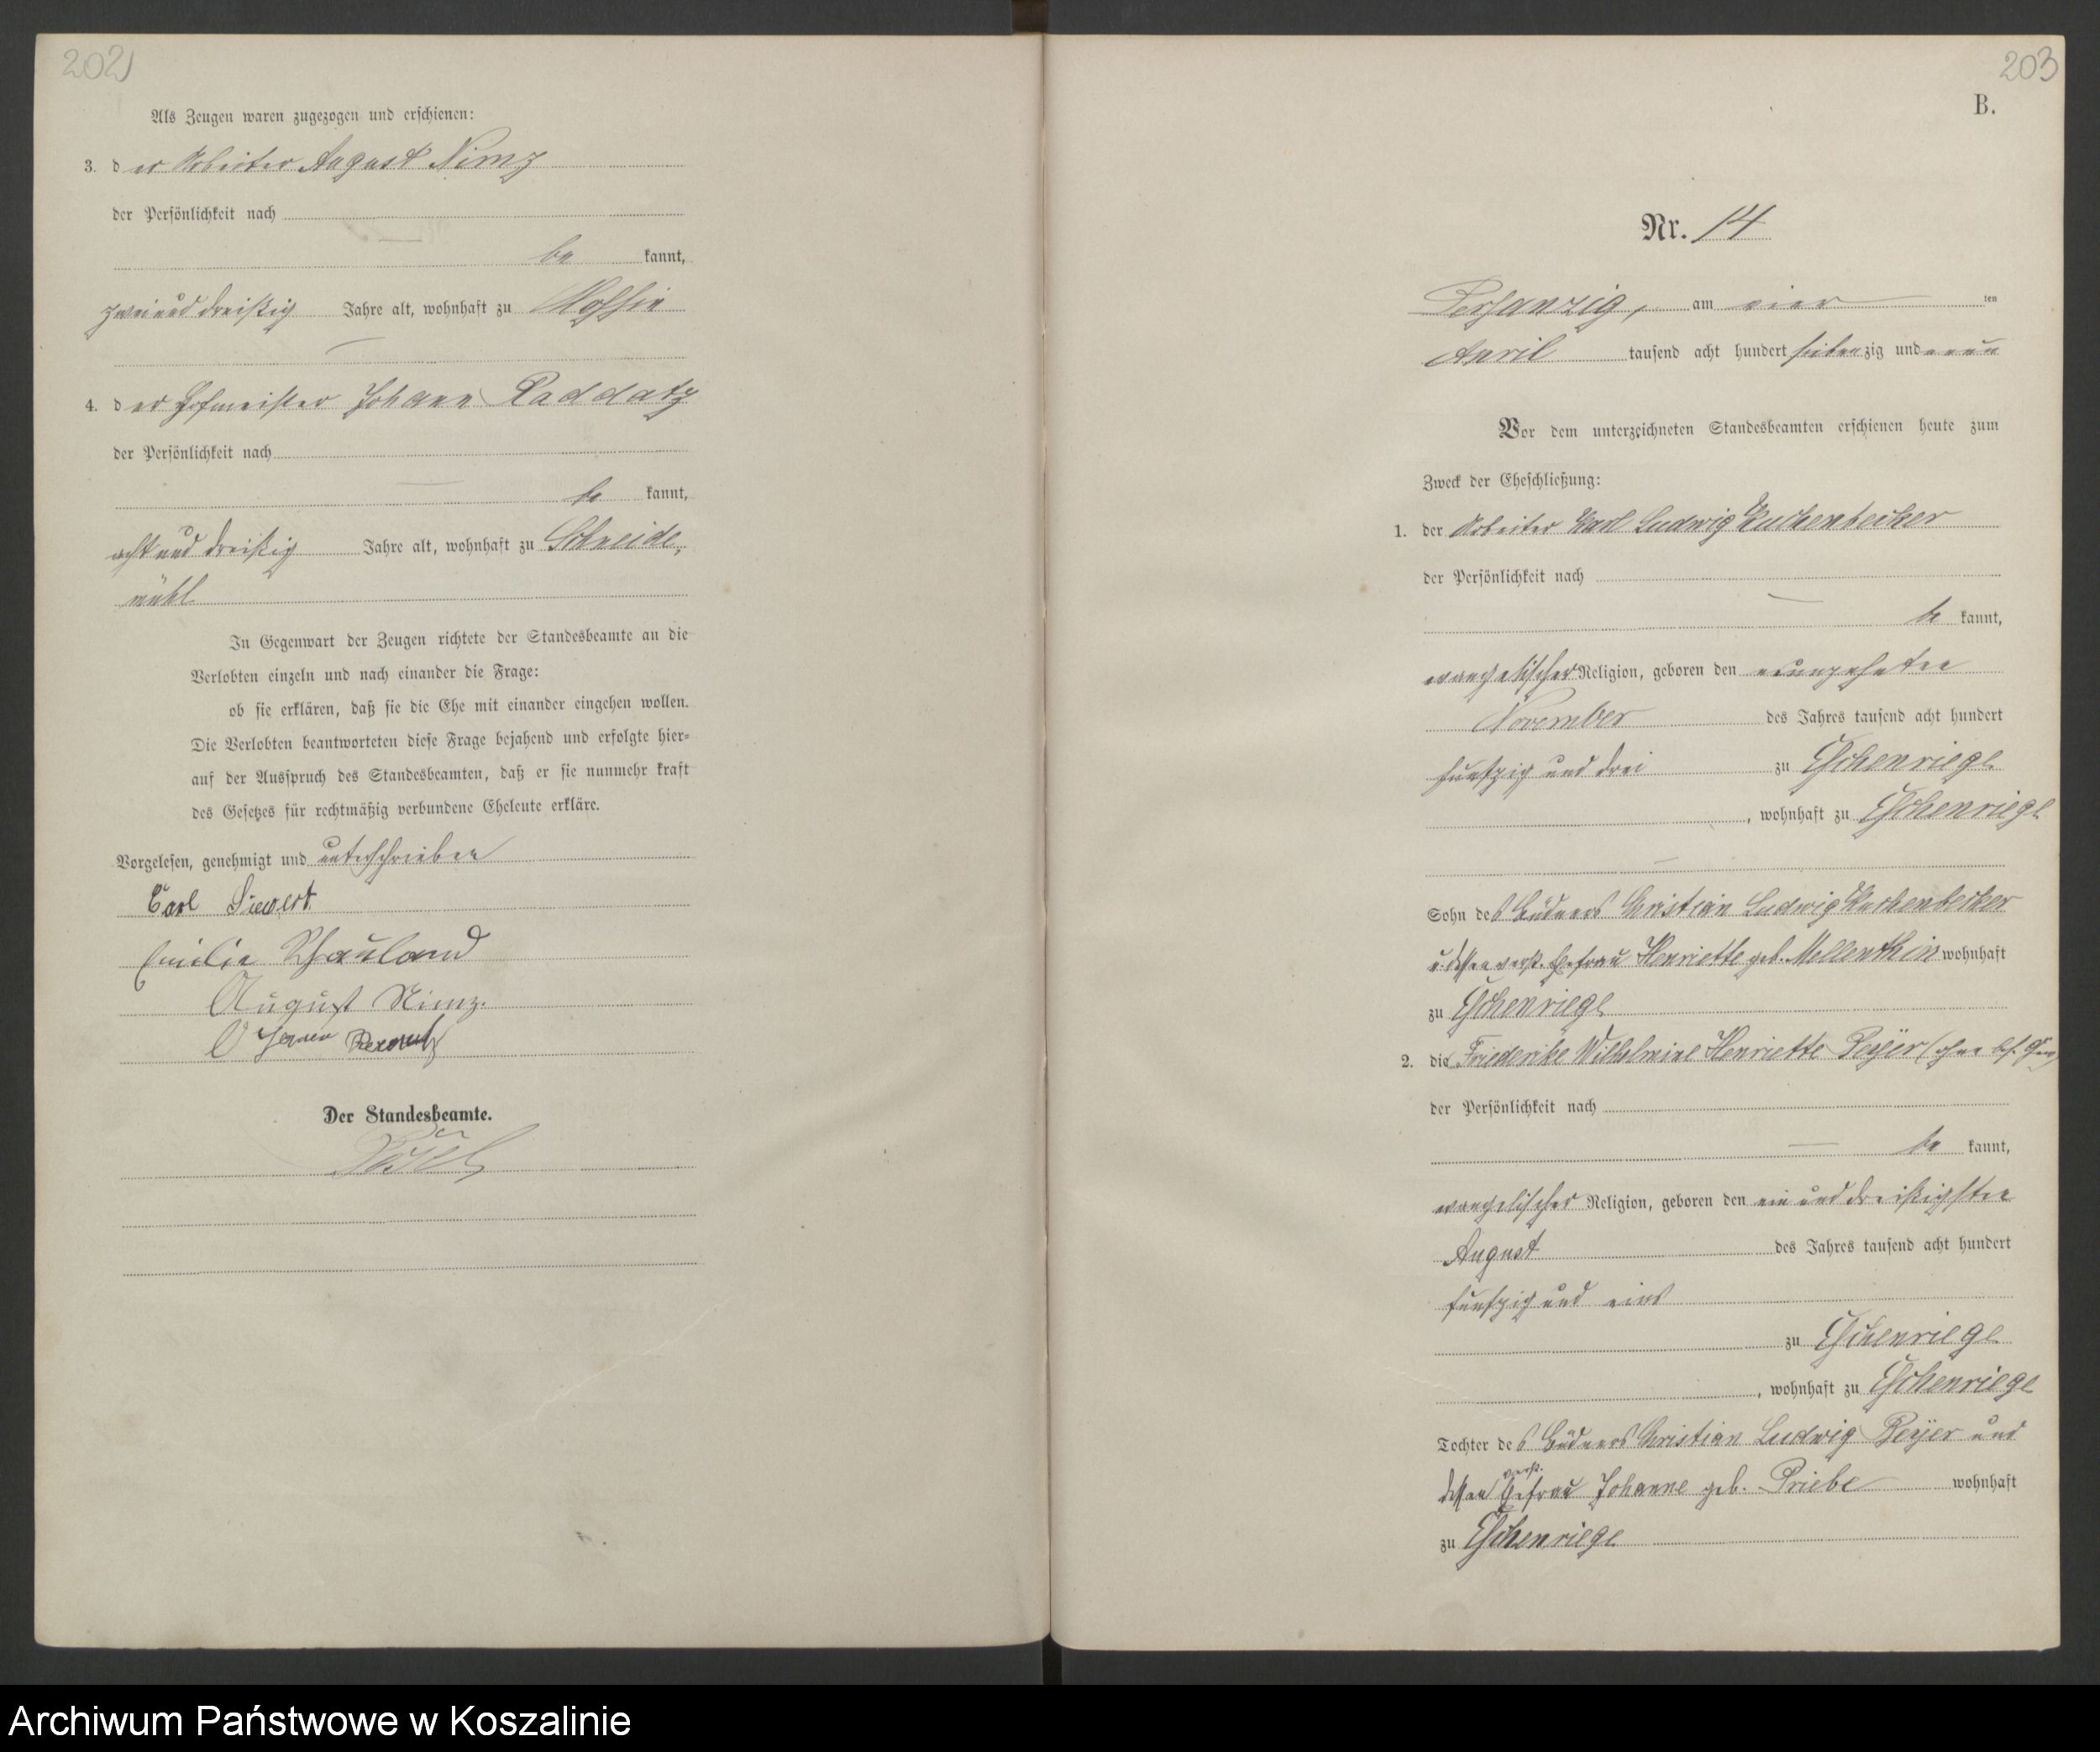 202
Als Zeugen waren zugezogen und erschienen:
3. der Arbeiter August Nimz
der Persönlichkeit nach
be kannt,
zweiund dreißig Jahre alt, wohnhaft zu Mossin
4. der Hofmeister Johann Raddatz
der Persönlichkeit nach
be kannt,
achtund dreißig Jahre alt, wohnhaft zu Schneide-
mühl
In Gegenwart der Zeugen richtete der Standesbeamte an die
Verlobten einzeln und nach einander die Frage:
ob sie erklären, daß sie die Ehe mit einander eingehen wollen.
Die Verlobten beantworteten diese Frage bejahend und erfolgte hier-
auf der Ausspruch des Standesbeamten, daß er sie nunmehr kraft
des Gesetzes für rechtmäßig verbundene Eheleute erkläre.
Vorgelesen, genehmigt und unterschrieben
Carl Siewert
Emilie Schauland
August Nimz.
Der Standesbeamte.
203
B.
Nr. 14
Persanzig, am vier ten
April tausend acht hundert siebenzig und neun
Vor dem unterzeichneten Standesbeamten erschienen heute zum
Zweck der Eheschließung:
1. der Arbeiter Karl Ludwig Kuchenbecker
der Persönlichkeit nach
be kannt,
evangelischer Religion, geboren den neunzehnten
November des Jahres tausend acht hundert
funfzig und drei zu Eschenriege
, wohnhaft zu Eschenriege
Sohn des Büdners Christian Ludwig Kuchenbecker
u. dessen verst. Ehefrau Henriette geb. Mellenthin wohnhaft
zu Eschenriege
2. die Friederike Wilhelmine Henriette Beyer (ohne bes. Gew)
der Persönlichkeit nach
be kannt,
evangelischer Religion, geboren den ein und dreißigsten
August des Jahres tausend acht hundert
funfzig und eins
zu Eschenriege
, wohnhaft zu Eschenriege
Tochter des Büdners Christian Ludwig Beyer und
dessen verst. Ehefrau Johanne geb. Priebe wohnhaft
zu Eschenriege
Archiwum Państwowe w Koszalinie